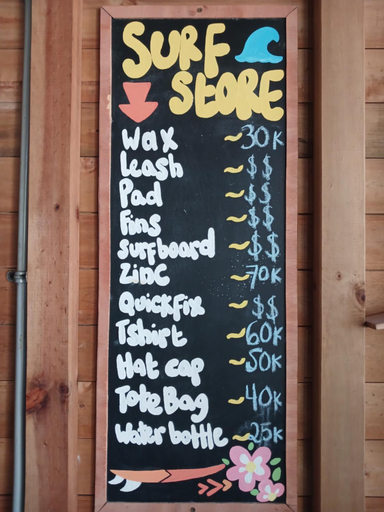 SURF
STORE
Wax ~30K
Leash ~$$
Pad ~$$
Fins ~$$
Surfboard ~$$
Zinc ~70K
Quickfix ~$$
Tshirt ~60K
Hat cap ~50K
ToteBag ~40K
Water bottle ~25K